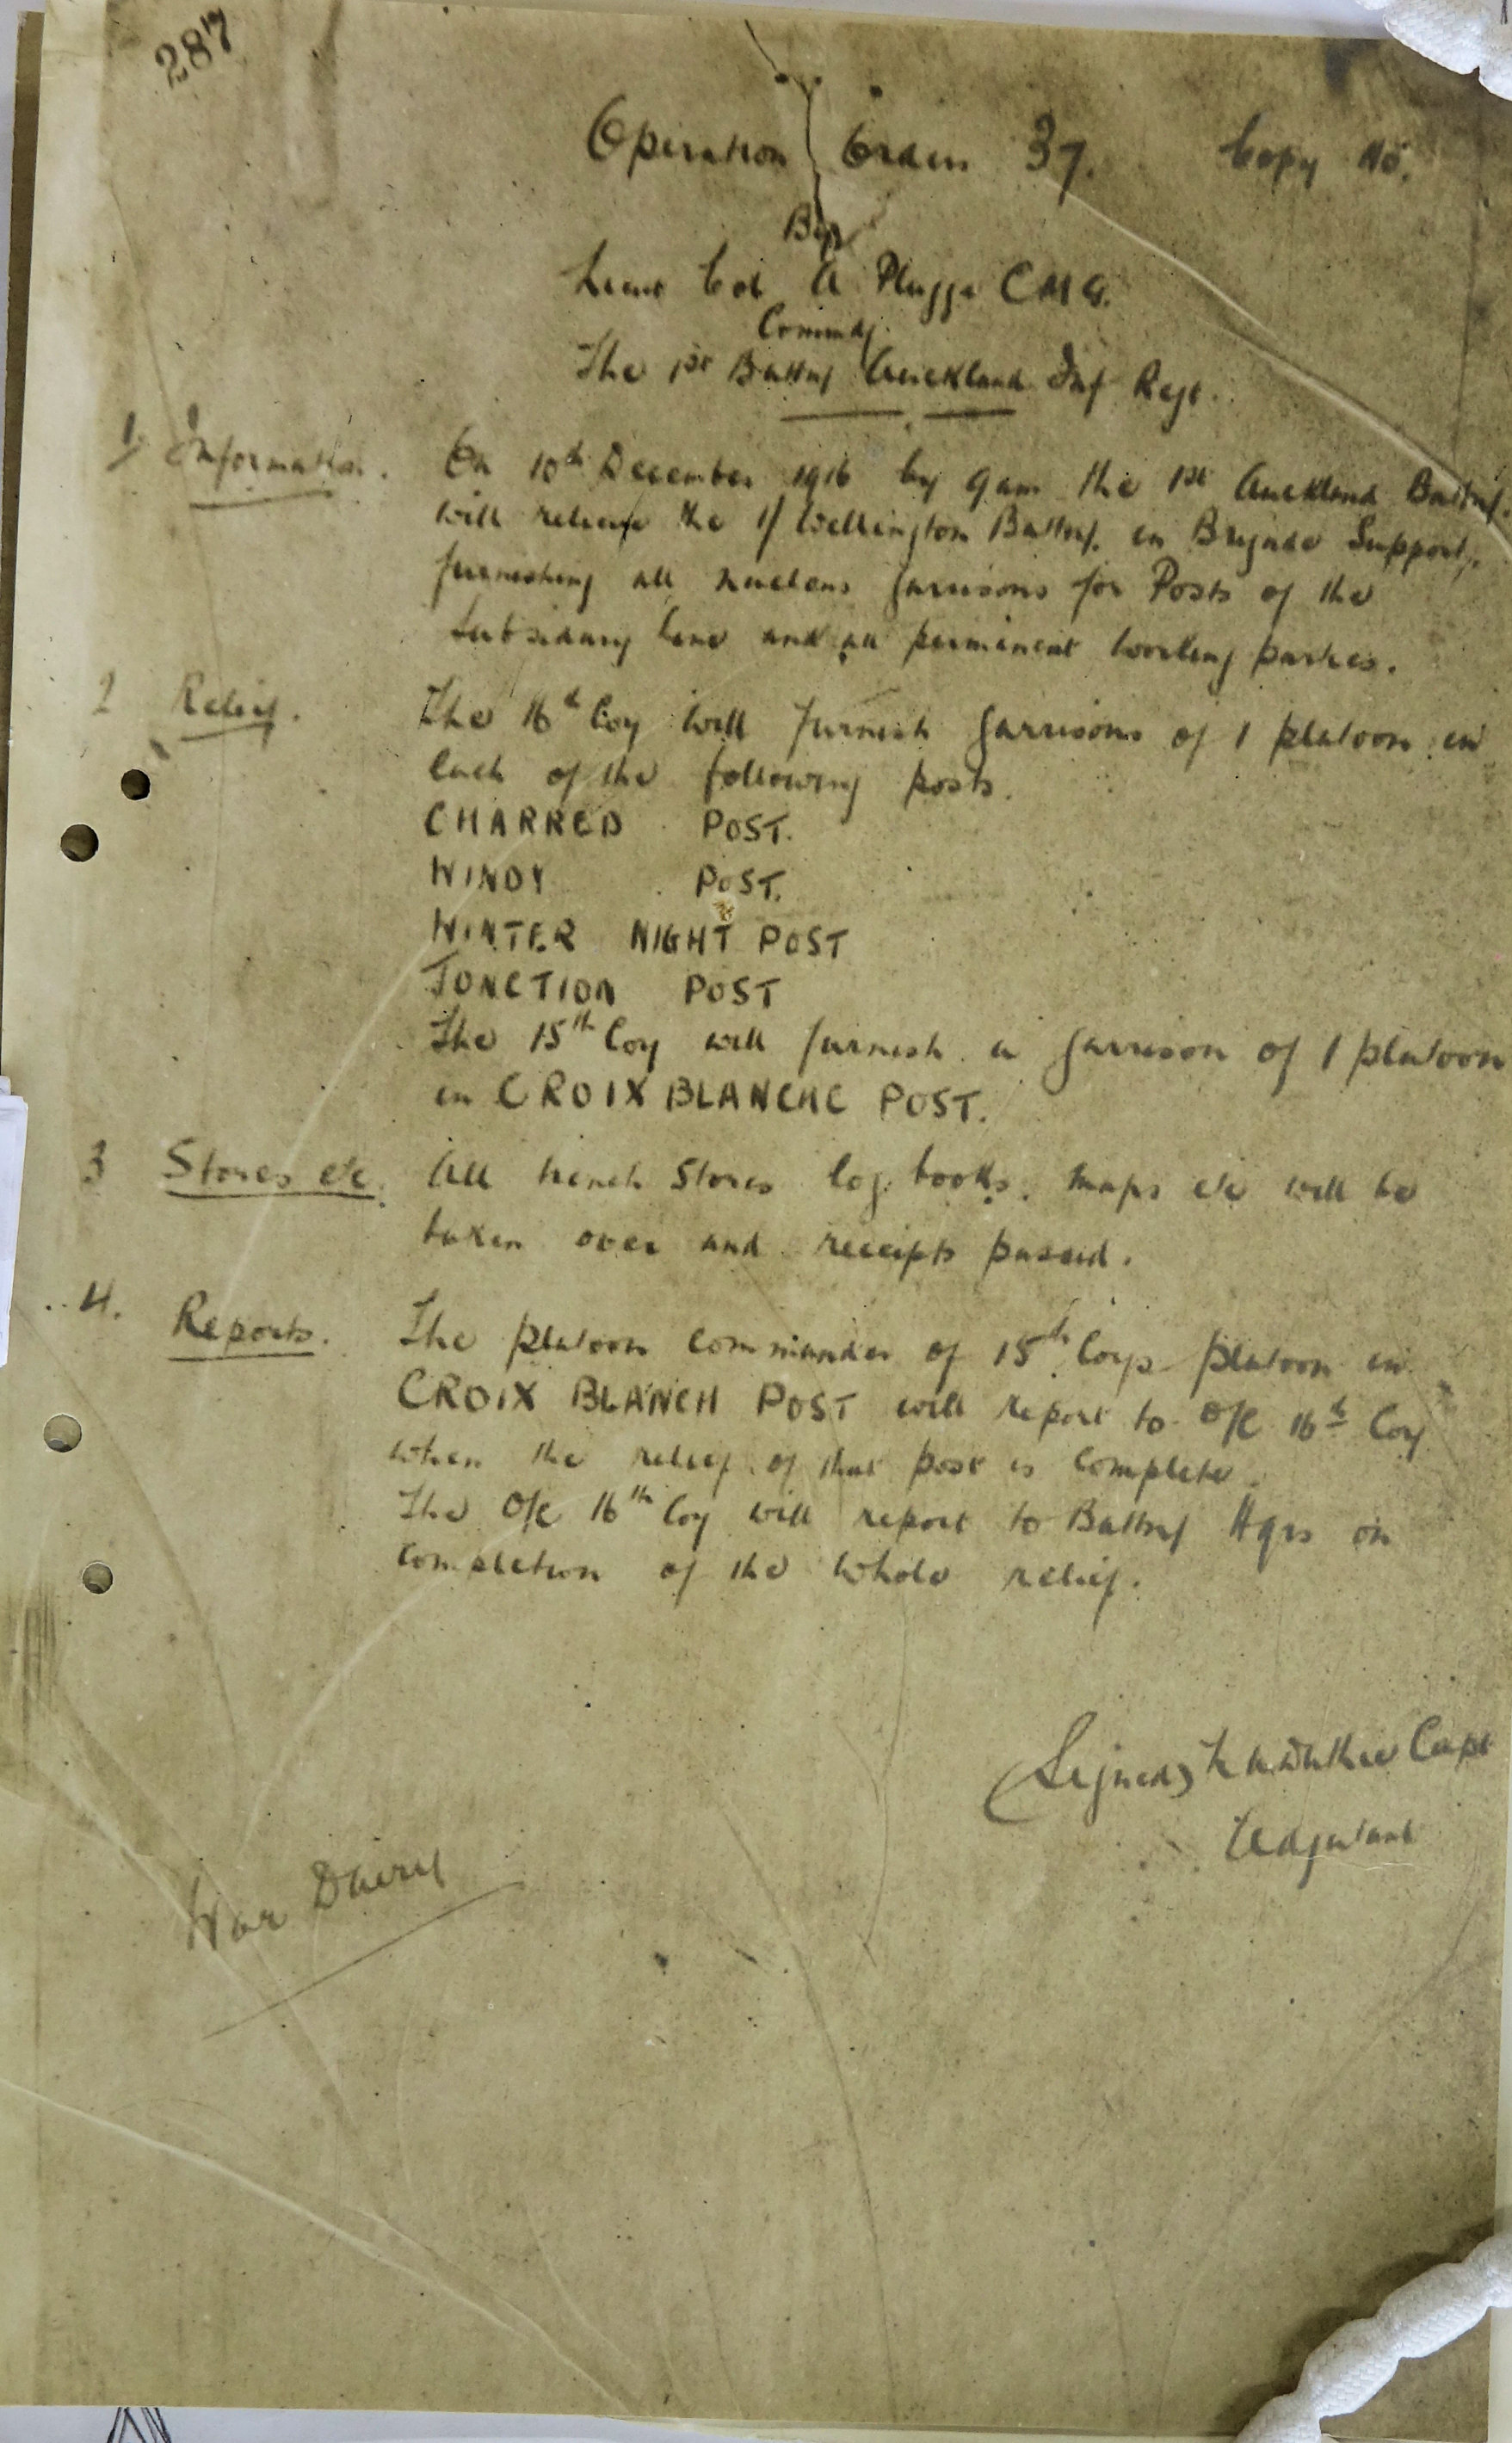 287
Operation Order 37. Copy No.
By
Lieut Col A Plugge C M G.
Commdg.
The 1st Battn Auckland Inf Regt.
1. Information.
On 10th December 1916 by 9 am the 1st Auckland Battn.
will relieve the 1/ Wellington Battn. in Brigade Support,
furnishing all nucleus garrisons for Posts of the
Subsidiary line and all permanent working parties.
2 Relief.
The 16th Coy will furnish garrisons of 1 platoon in
each of the following posts.
CHARRED POST.
WINDY POST.
WINTER NIGHT POST
JONCTION POST
The 15th Coy will furnish a garrison of 1 platoon
in CROIX BLANCHE POST.
3 Stores etc.
All trench stores log books, maps etc will be
taken over and receipts passed.
4. Reports.
The platoon commander of 15th Coys platoon in
CROIX BLANCH POST will report to O/C 16th Coy
when the relief of that post is complete.
The O/C 16th Coy will report to Battn Hqrs on
completion of the whole relief.
(Signed) Capt
Adjutant
War Diary